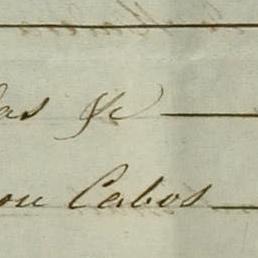 as &c
ou Cabos